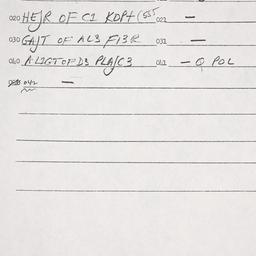 020 HEJR OF C1 KDPT (SST 021 —
030 GAJT OF AL3 FI3R 031 —
040 ALIGT OF D3 PLAJC3 041 — Q POL
042 —